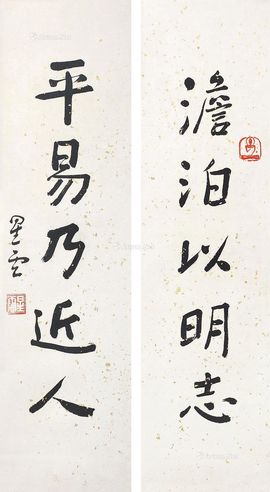 澹泊以明志
平易乃近人
星云